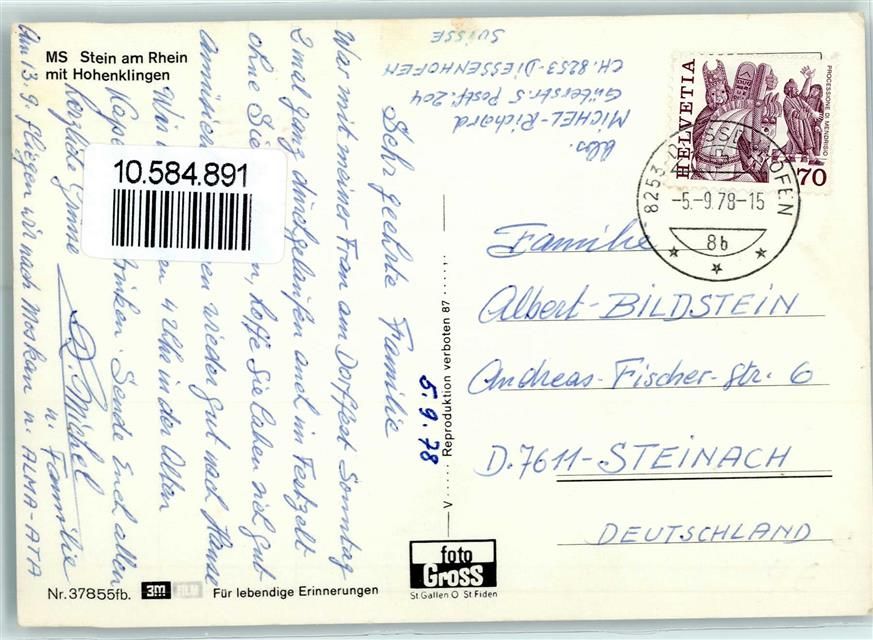 MS Stein am Rhein
mit Hohenklingen
10.584.891
Abs.
MICHEL-Richard
Güterstr. 5 Postf. 204
CH. 8253-DIESSENHOFEN
SUISSE
5.9.78
Sehr geehrte Familie
War mit meiner Frau am Dorffest Sonntag
2 mal ganz durchgelaufen auch im Festzelt
ohne Sie, hoffe Sie haben sich gut
wieder gut nach Hause
War 4 Uhr in der Alten
trinken. Sende Euch allen
herzliche Grüsse
R. Michel
u. Familie
Am 13.9. fliegen wir nach Moskau u. ALMA-ATA
HELVETIA
PROCESSIONE DI MENDRISIO
70
8253 DIESSENHOFEN
-5.-9.78-15
8b
Familie
Albert-BILDSTEIN
Andreas-Fischer-str. 6
D.7611-STEINACH
DEUTSCHLAND
V Reproduktion verboten 87
foto
Gross
St Gallen O St Fiden
Nr. 37855fb. 3M FILM Für lebendige Erinnerungen